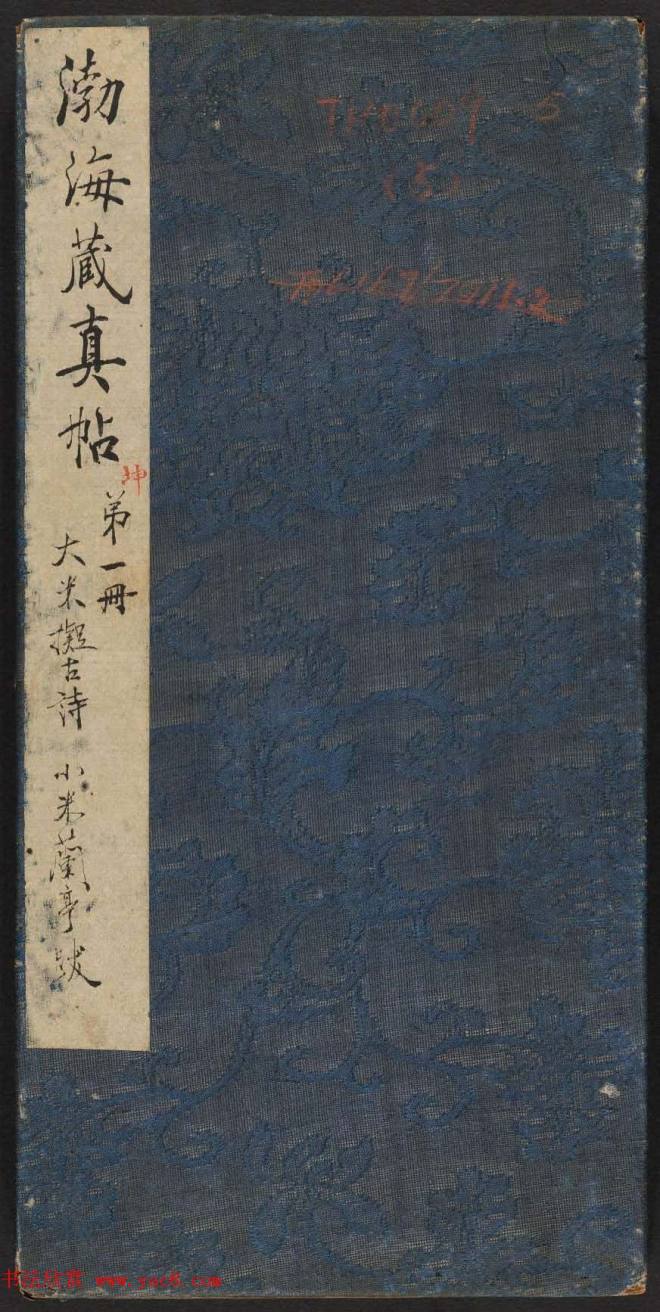 渤海蔵真帖
坤
弟一冊
大米擬古詩 小米蘭亭跋
(5)
书法欣赏 www.yac8.com